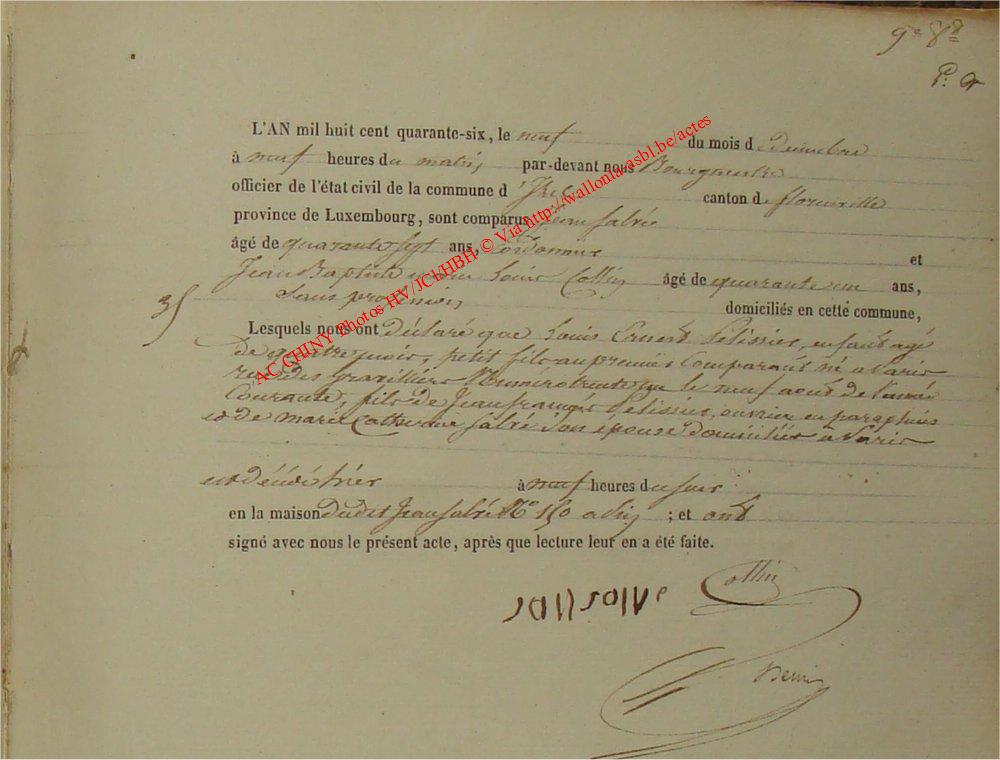 9e 8e
L'AN mil huit cent quarante-six, le neuf du mois d decembre
à neuf heures du matin, par-devant nous Bourgmestre
officier de l'état civil de la commune d' canton de florenville
province de Luxembourg, sont comparus jean fabré
âgé de quarante sept ans, Cordonnier et
Jean Baptiste Louis Collin âgé de quarante un ans,
Sans profession domiciliés en cette commune,
35
Lesquels nous ont déclaré que Louis Ernest Pelissier, enfant agé
de quatre mois, petit fils au premier Comparant né a Paris
rue des Gravilliers Numero trente le neuf aout de l'année
Courante, fils de Jean françois Pelissier, ouvrier en parapluies
et de marie Catherine fabré son épouse domiciliés a Paris
est décédé hier à neuf heures du soir
en la maison dudit Jean fabré No 150 ; et ont
signé avec nous le présent acte, après que lecture leur en a été faite.
Collin
AC CHINY Photos HV/JCl/HBH © Via http://wallonia-asbl.be/actes